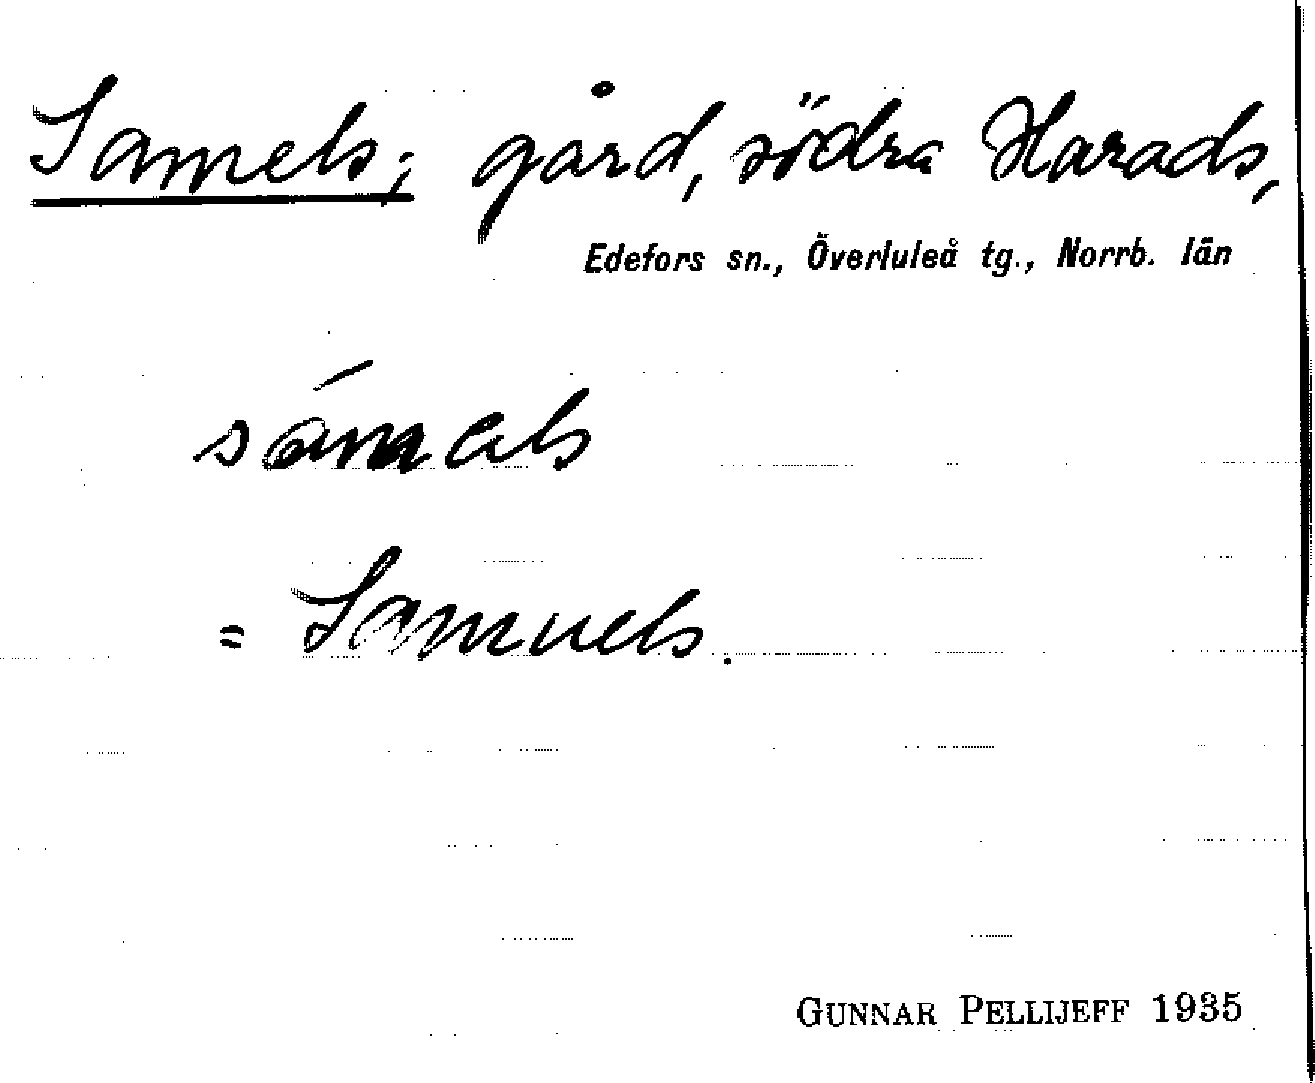 Samels; gård, södra Harads,
Edefors sn., Överluleå tg., Norrb. län
sámals
= Samuels.
GUNNAR PELLIJEFF 1935